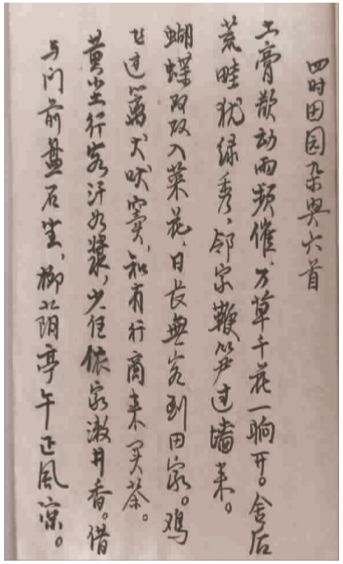 四时田园杂興六首
土膏欲动雨频催,万草千花一晌开。舍后
荒畦犹绿秀,邻家鞭笋过墙来。
蝴蝶双双入菜花,日长無客到田家。鸡
飞过篱犬吠窦,知有行商来买茶。
黄尘行客汗如漿,少住侬家漱井香。借
与门前盘石坐,柳阴亭午正風凉。